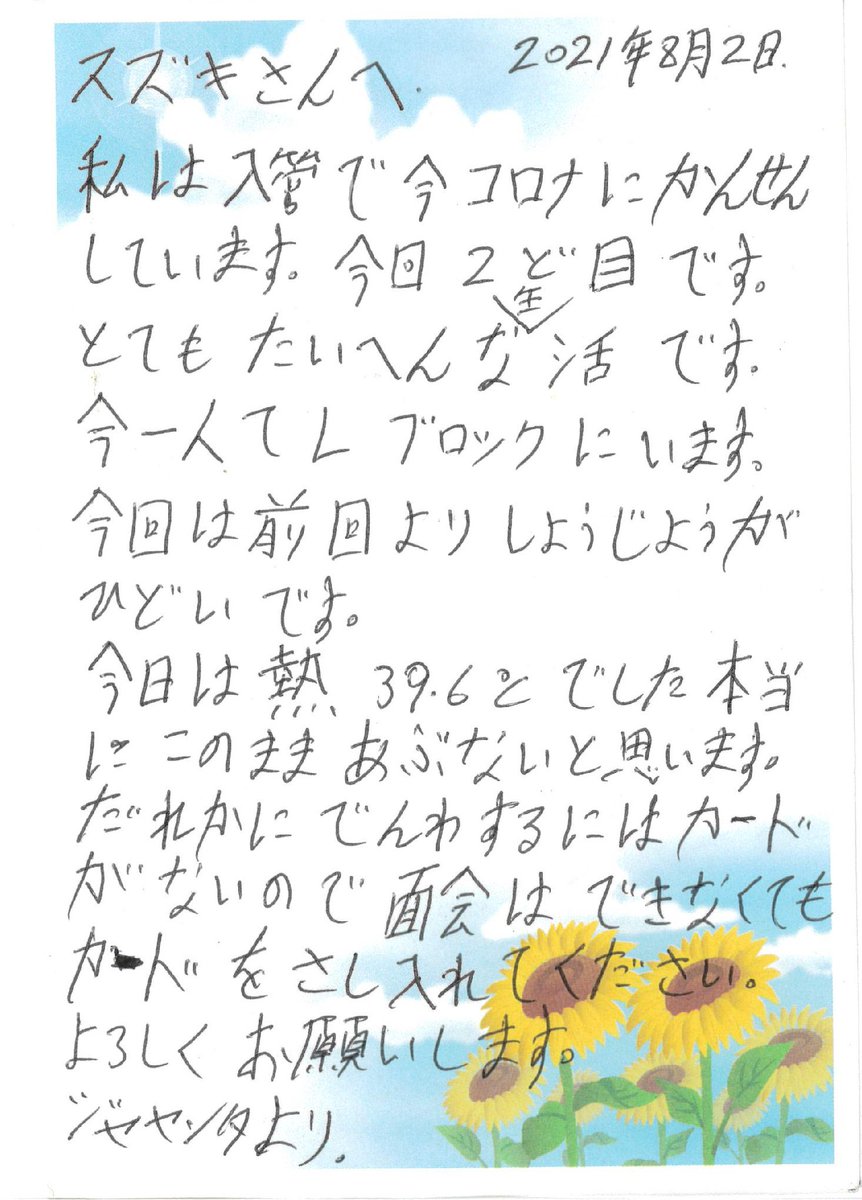 2021年8月2日.
スズキさんへ.
私は入管で今コロナにかんせん
しています。今回2ど目です。
とてもたいへんな生活です.
今一人てLブロックにいます。
今回は前回よりしょうじようが
ひどいです。
今日は熱39.6どでした本当
にこのままあぶないと思います。
だれかにでんわするにはカード
がないので面会はできなくても
カードをさし入れてください。
よろしくお願いします。
ジャヤンタより.